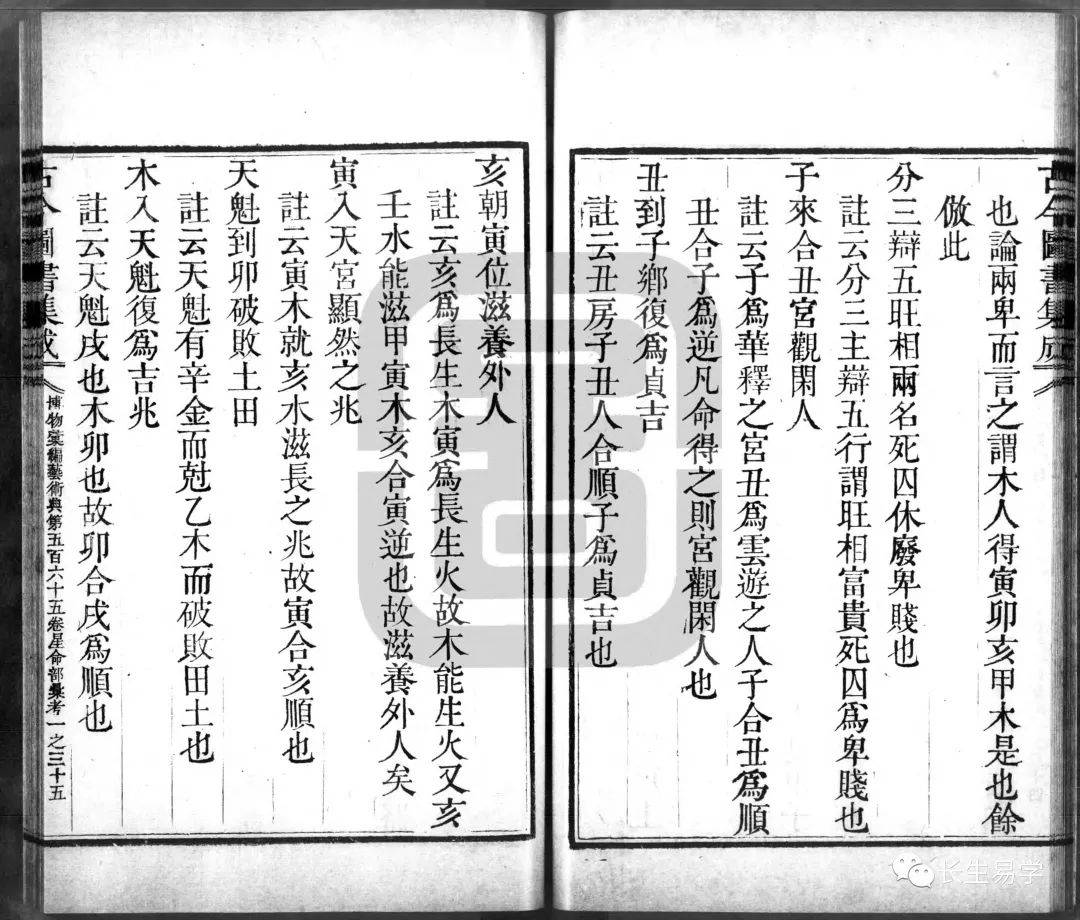 古今圖書集成
也論兩卑而言之謂木人得寅卯亥甲木是也餘
倣此
分三辯五旺相兩名死囚休廢卑賤也
註云分三主辯五行謂旺相富貴死囚爲卑賤也
子來合丑宮觀閑人
註云子爲華釋之宮丑爲雲遊之人子合丑爲順
丑合子爲逆凡命得之則宮觀閑人也
丑到子鄉復爲貞吉
註云丑房子丑人合順子爲貞吉也
亥朝寅位滋養外人
註云亥爲長生木寅爲長生火故木能生火又亥
壬水能滋甲寅木亥合寅逆也故滋養外人矣
寅入天宮顯然之兆
註云寅木就亥水滋長之兆故寅合亥順也
天魁到卯破敗土田
註云天魁有辛金而尅乙木而破敗田土也
木入天魁復爲吉兆
註云天魁戌也木卯也故卯合戌爲順也
古今圖書集成 博物彙編藝術典第五百六十五卷星命部彙考一之三十五
长生易学